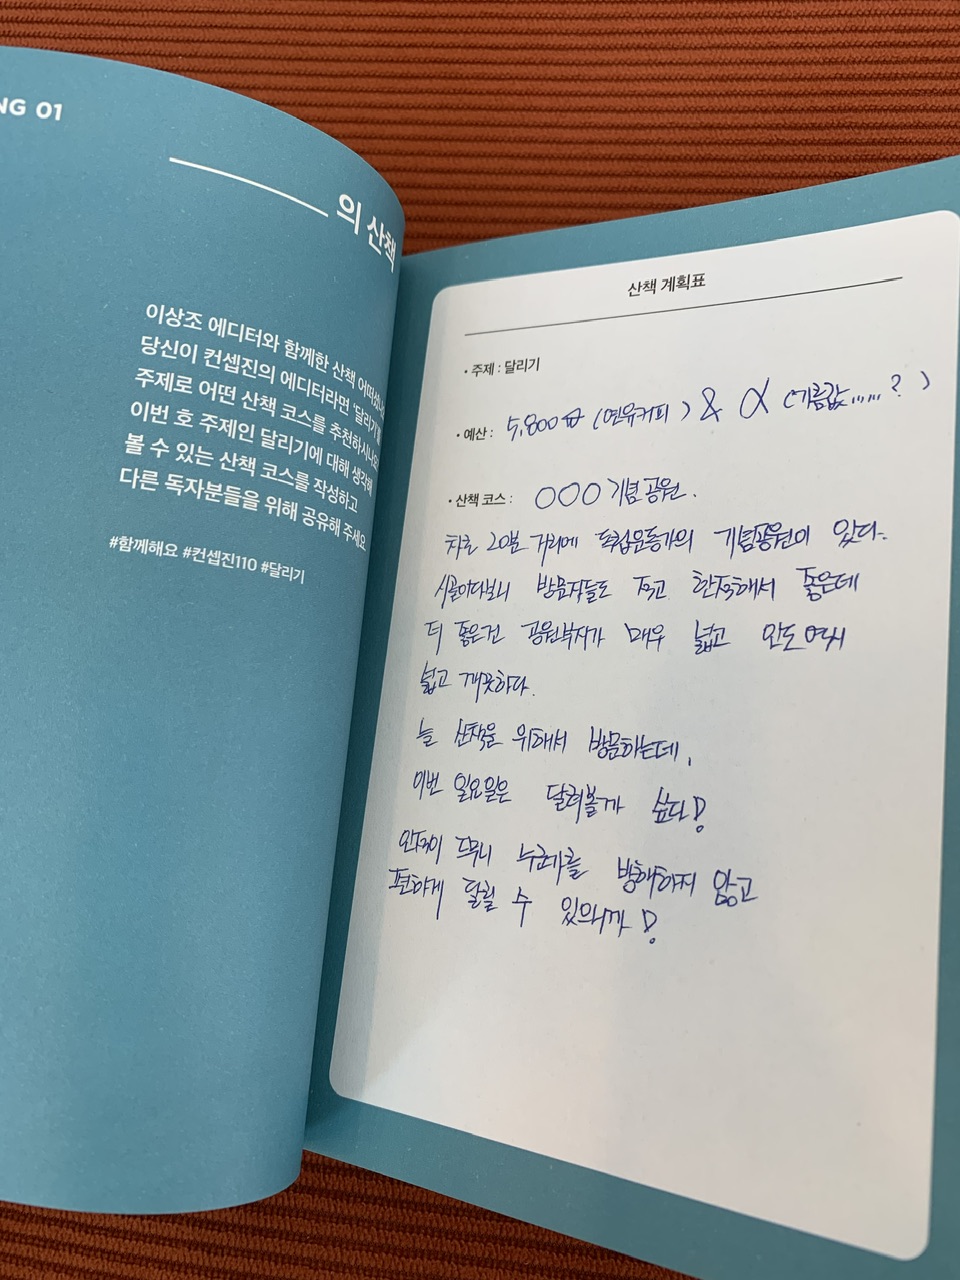 NG 01
의 산책
이상조 에디터와 함께한 산책 어떠셨나요
당신이 컨셉진의 에디터라면 '달리기'를
주제로 어떤 산책 코스를 추천하시나요
이번 호 주제인 달리기에 대해 생각해
볼 수 있는 산책 코스를 작성하고
다른 독자분들을 위해 공유해 주세요
#함께해요 #컨셉진110 #달리기
산책 계획표
• 주제 : 달리기
• 예산 : 5,800₩ (연유커피) & α (기름값......?)
• 산책 코스 : ○○○ 기념공원.
차로 20분 거리에 독립운동가의 기념공원이 있다.
시골이다보니 방문자들도 적고 한적해서 좋은데
더 좋은건 공원부지가 매우 넓고 안도 역시
넓고 깨끗하다.
늘 산책을 위해서 방문하는데,
이번 일요일은 달려볼까 싶다!
인적이 드무니 누군가를 방해하지 않고
편하게 달릴 수 있으니까!